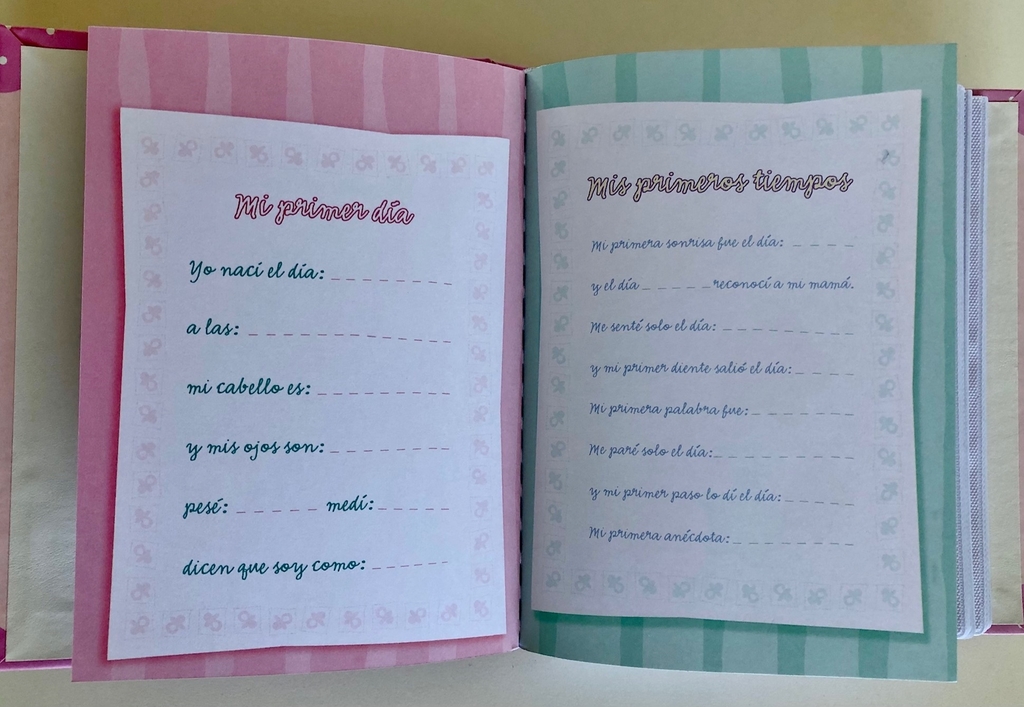 Mi primer día
Yo nací el día:
a las:
mi cabello es:
y mis ojos son:
pesé: medí:
dicen que soy como:
Mis primeros tiempos
Mi primera sonrisa fue el día:
y el día reconocí a mi mamá.
Me senté solo el día:
y mi primer diente salió el día:
Mi primera palabra fue:
Me paré solo el día:
y mi primer paso lo dí el día:
Mi primera anécdota: